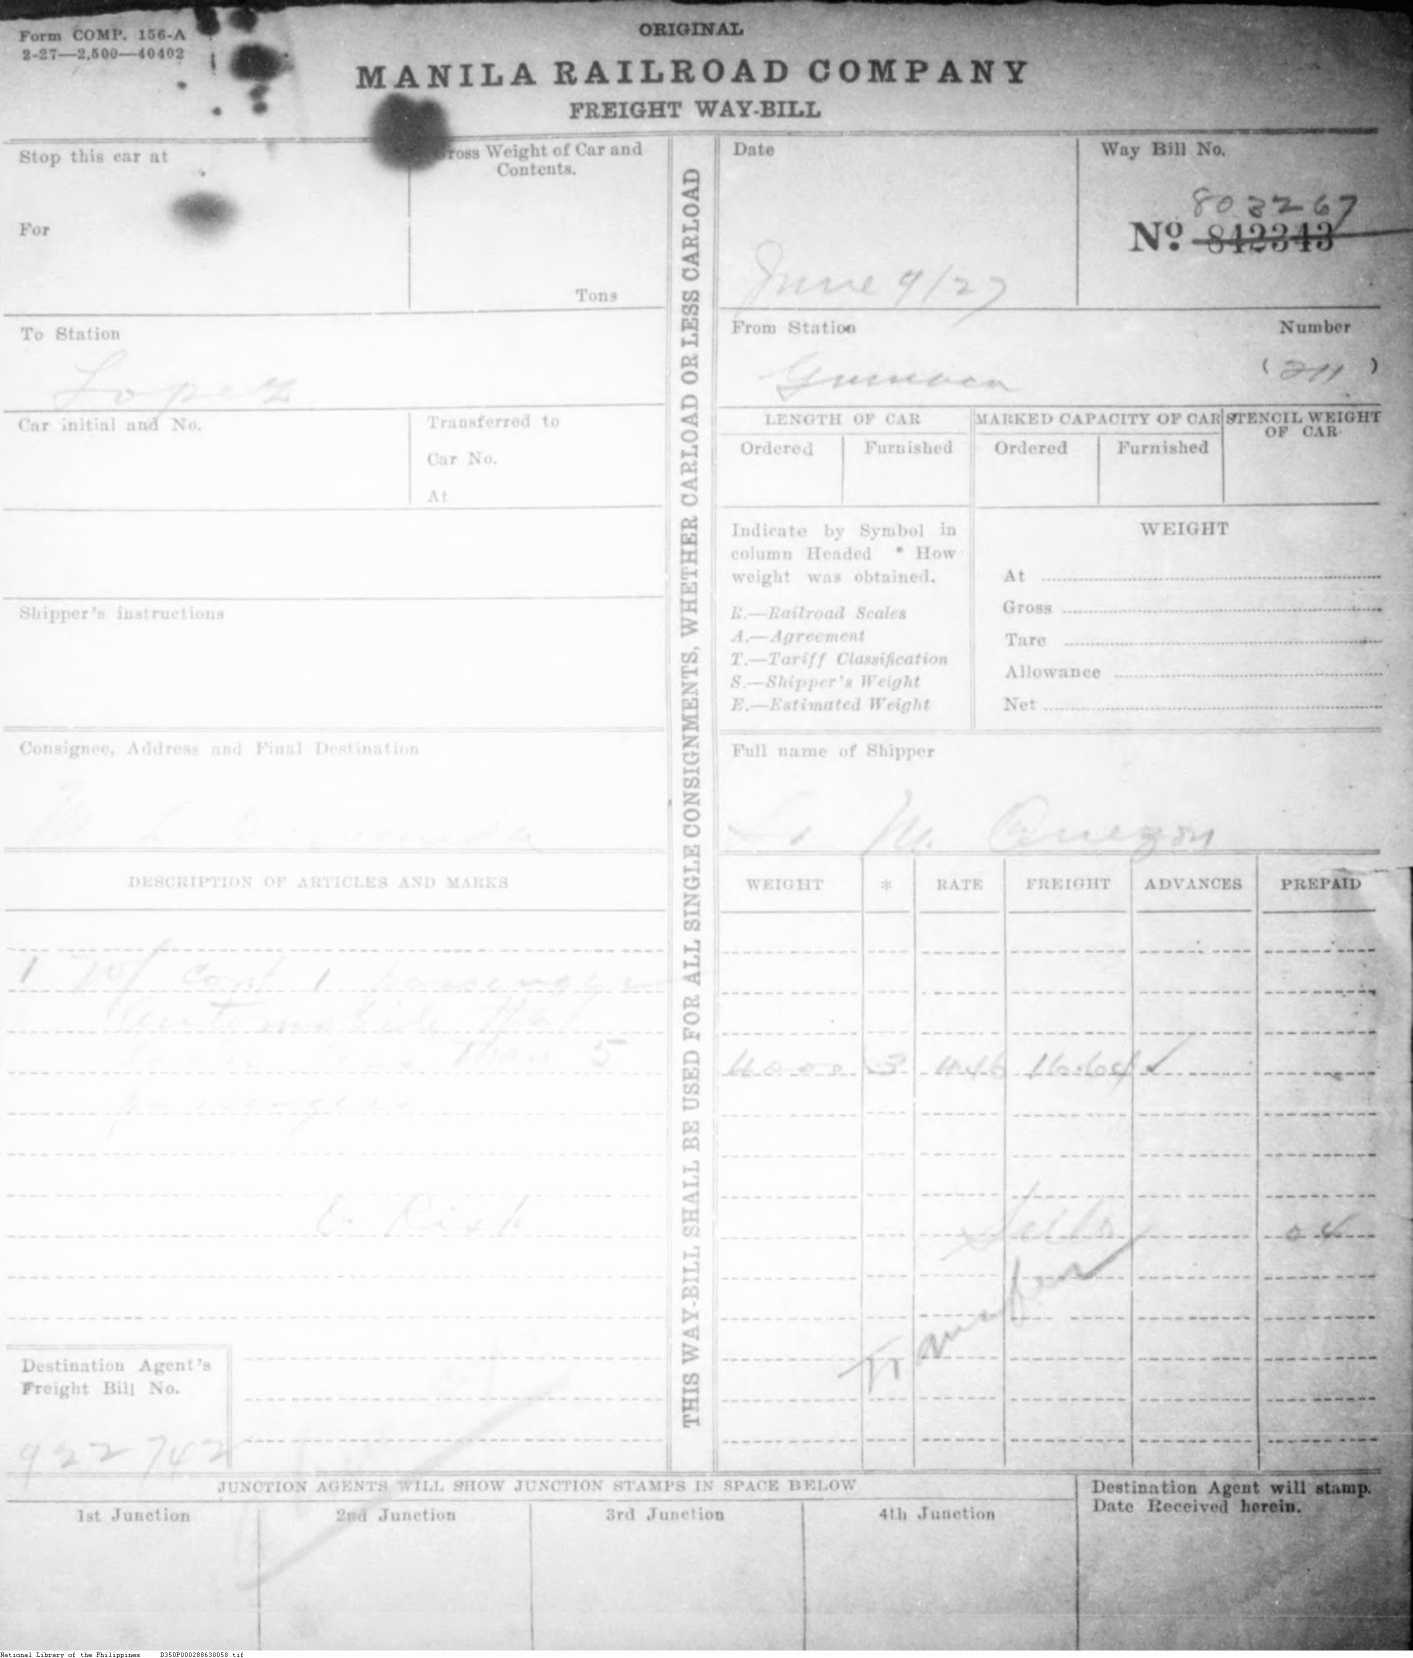 Form COMP. 156-A
2-27—2,500—40402
ORIGINAL
MANILA RAILROAD COMPANY
FREIGHT WAY-BILL
Stop this car at
For
Gross Weight of Car and
Contents.
Tons
Date
June 9/27
Way Bill No.
803267
Nº 842343
To Station
Lopez
From Station
Gumaca
Number
(211)
Car initial and No.
Transferred to
Car No.
At
LENGTH OF CAR
Ordered Furnished
MARKED CAPACITY OF CAR
Ordered Furnished
STENCIL WEIGHT
OF CAR
Indicate by Symbol in
column Headed * How
weight was obtained.
R.—Railroad Scales
A.—Agreement
T.—Tariff Classification
S.—Shipper's Weight
E.—Estimated Weight
WEIGHT
At
Gross
Tare
Allowance
Net
Shipper's instructions
Consignee, Address and Final Destination
Full name of Shipper
M. Quezon
THIS WAY-BILL SHALL BE USED FOR ALL SINGLE CONSIGNMENTS, WHETHER CARLOAD OR LESS CARLOAD
DESCRIPTION OF ARTICLES AND MARKS
WEIGHT * RATE FREIGHT ADVANCES PREPAID
1 1 passenger
Automobile
less than 5
passengers
4000 3 16.64 ✓
O. Risk
Transfer
Destination Agent's
Freight Bill No.
922742
JUNCTION AGENTS WILL SHOW JUNCTION STAMPS IN SPACE BELOW
1st Junction 2nd Junction 3rd Junction 4th Junction
Destination Agent will stamp.
Date Received herein.
National Library of the Philippines D350P000288638058.tif